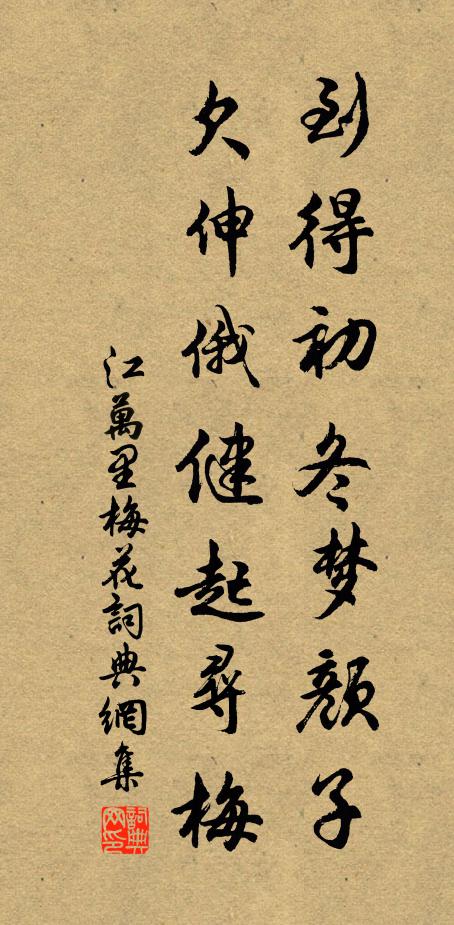 到得初冬梦颜子
欠伸俄健起寻梅
江萬里梅花詞典網集
詞典網印